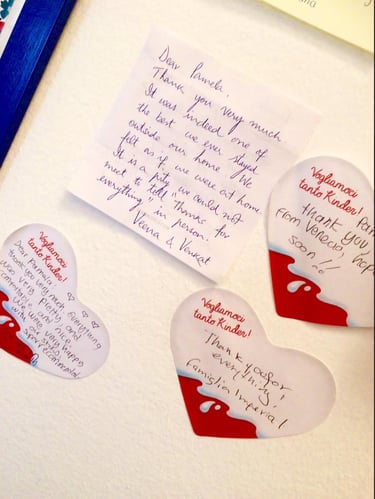 Dear Pamela,
Thank you very much.
It was indeed one of
the best we ever stayed
outside our home. We
felt as if we were at home.
It is a pity we could not
meet to tell "Thanks for
everything" in person.
Veena & Venkat
Vogliamoci
tanto Kinder!
thank you
From Venecia, hope
soon!!
Vogliamoci
tanto Kinder!
Dear Parmela
thank you very much. Everything
was very pretty and
comfortable and nice.
We were very happy
with our
Vogliamoci
tanto Kinder!
Thank you for
everything!
Famiglia Imperial